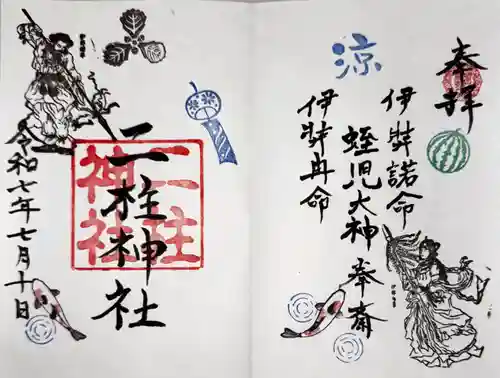 奉拝
伊弉諾命
蛭児大神 奉斎
伊弉冉命
涼
二柱神社
二柱神社
令和七年七月十日